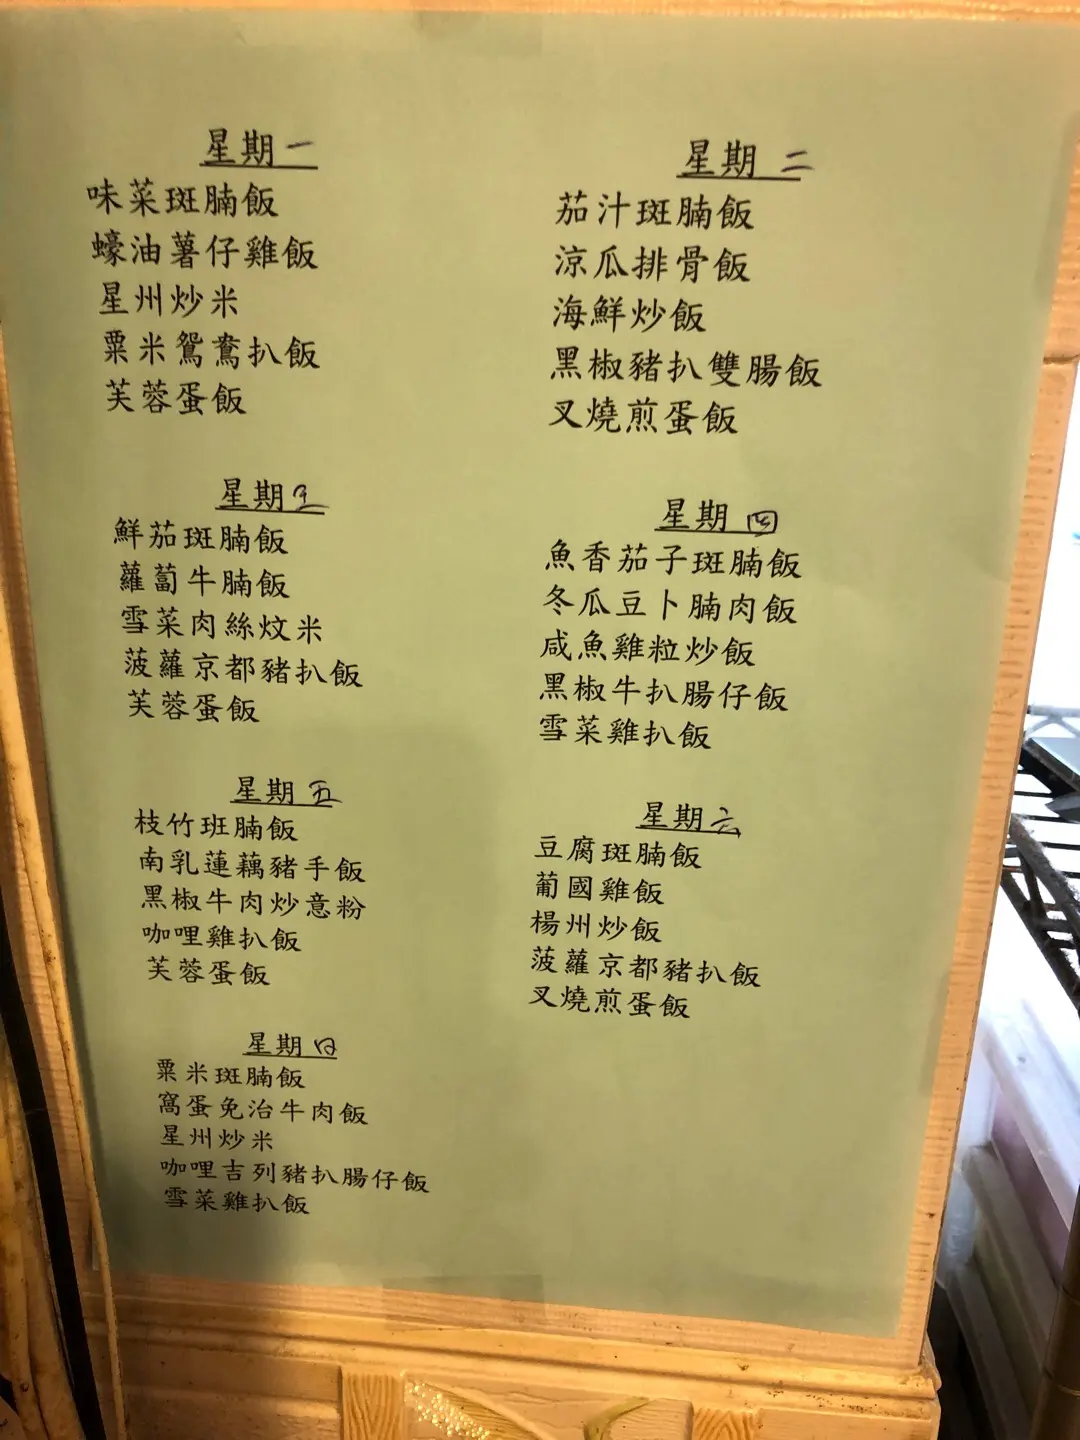 星期一
味菜斑腩飯
蠔油薯仔雞飯
星州炒米
粟米鴛鴦扒飯
芙蓉蛋飯
星期二
茄汁斑腩飯
涼瓜排骨飯
海鮮炒飯
黑椒豬扒雙腸飯
叉燒煎蛋飯
星期三
鮮茄斑腩飯
蘿蔔牛腩飯
雪菜肉絲炆米
菠蘿京都豬扒飯
芙蓉蛋飯
星期四
魚香茄子斑腩飯
冬瓜豆卜腩肉飯
咸魚雞粒炒飯
黑椒牛扒腸仔飯
雪菜雞扒飯
星期五
枝竹班腩飯
南乳蓮藕豬手飯
黑椒牛肉炒意粉
咖哩雞扒飯
芙蓉蛋飯
星期六
豆腐斑腩飯
葡國雞飯
楊州炒飯
菠蘿京都豬扒飯
叉燒煎蛋飯
星期日
粟米斑腩飯
窩蛋免治牛肉飯
星州炒米
咖哩吉列豬扒腸仔飯
雪菜雞扒飯